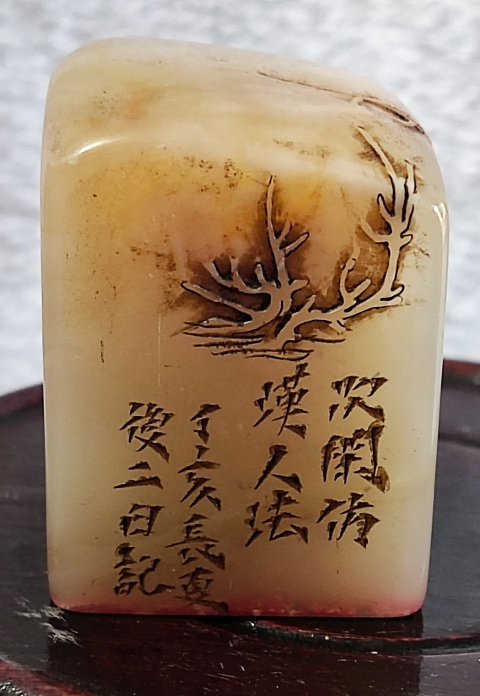 次閑仿
漢人法
丁亥長夏
後二日記